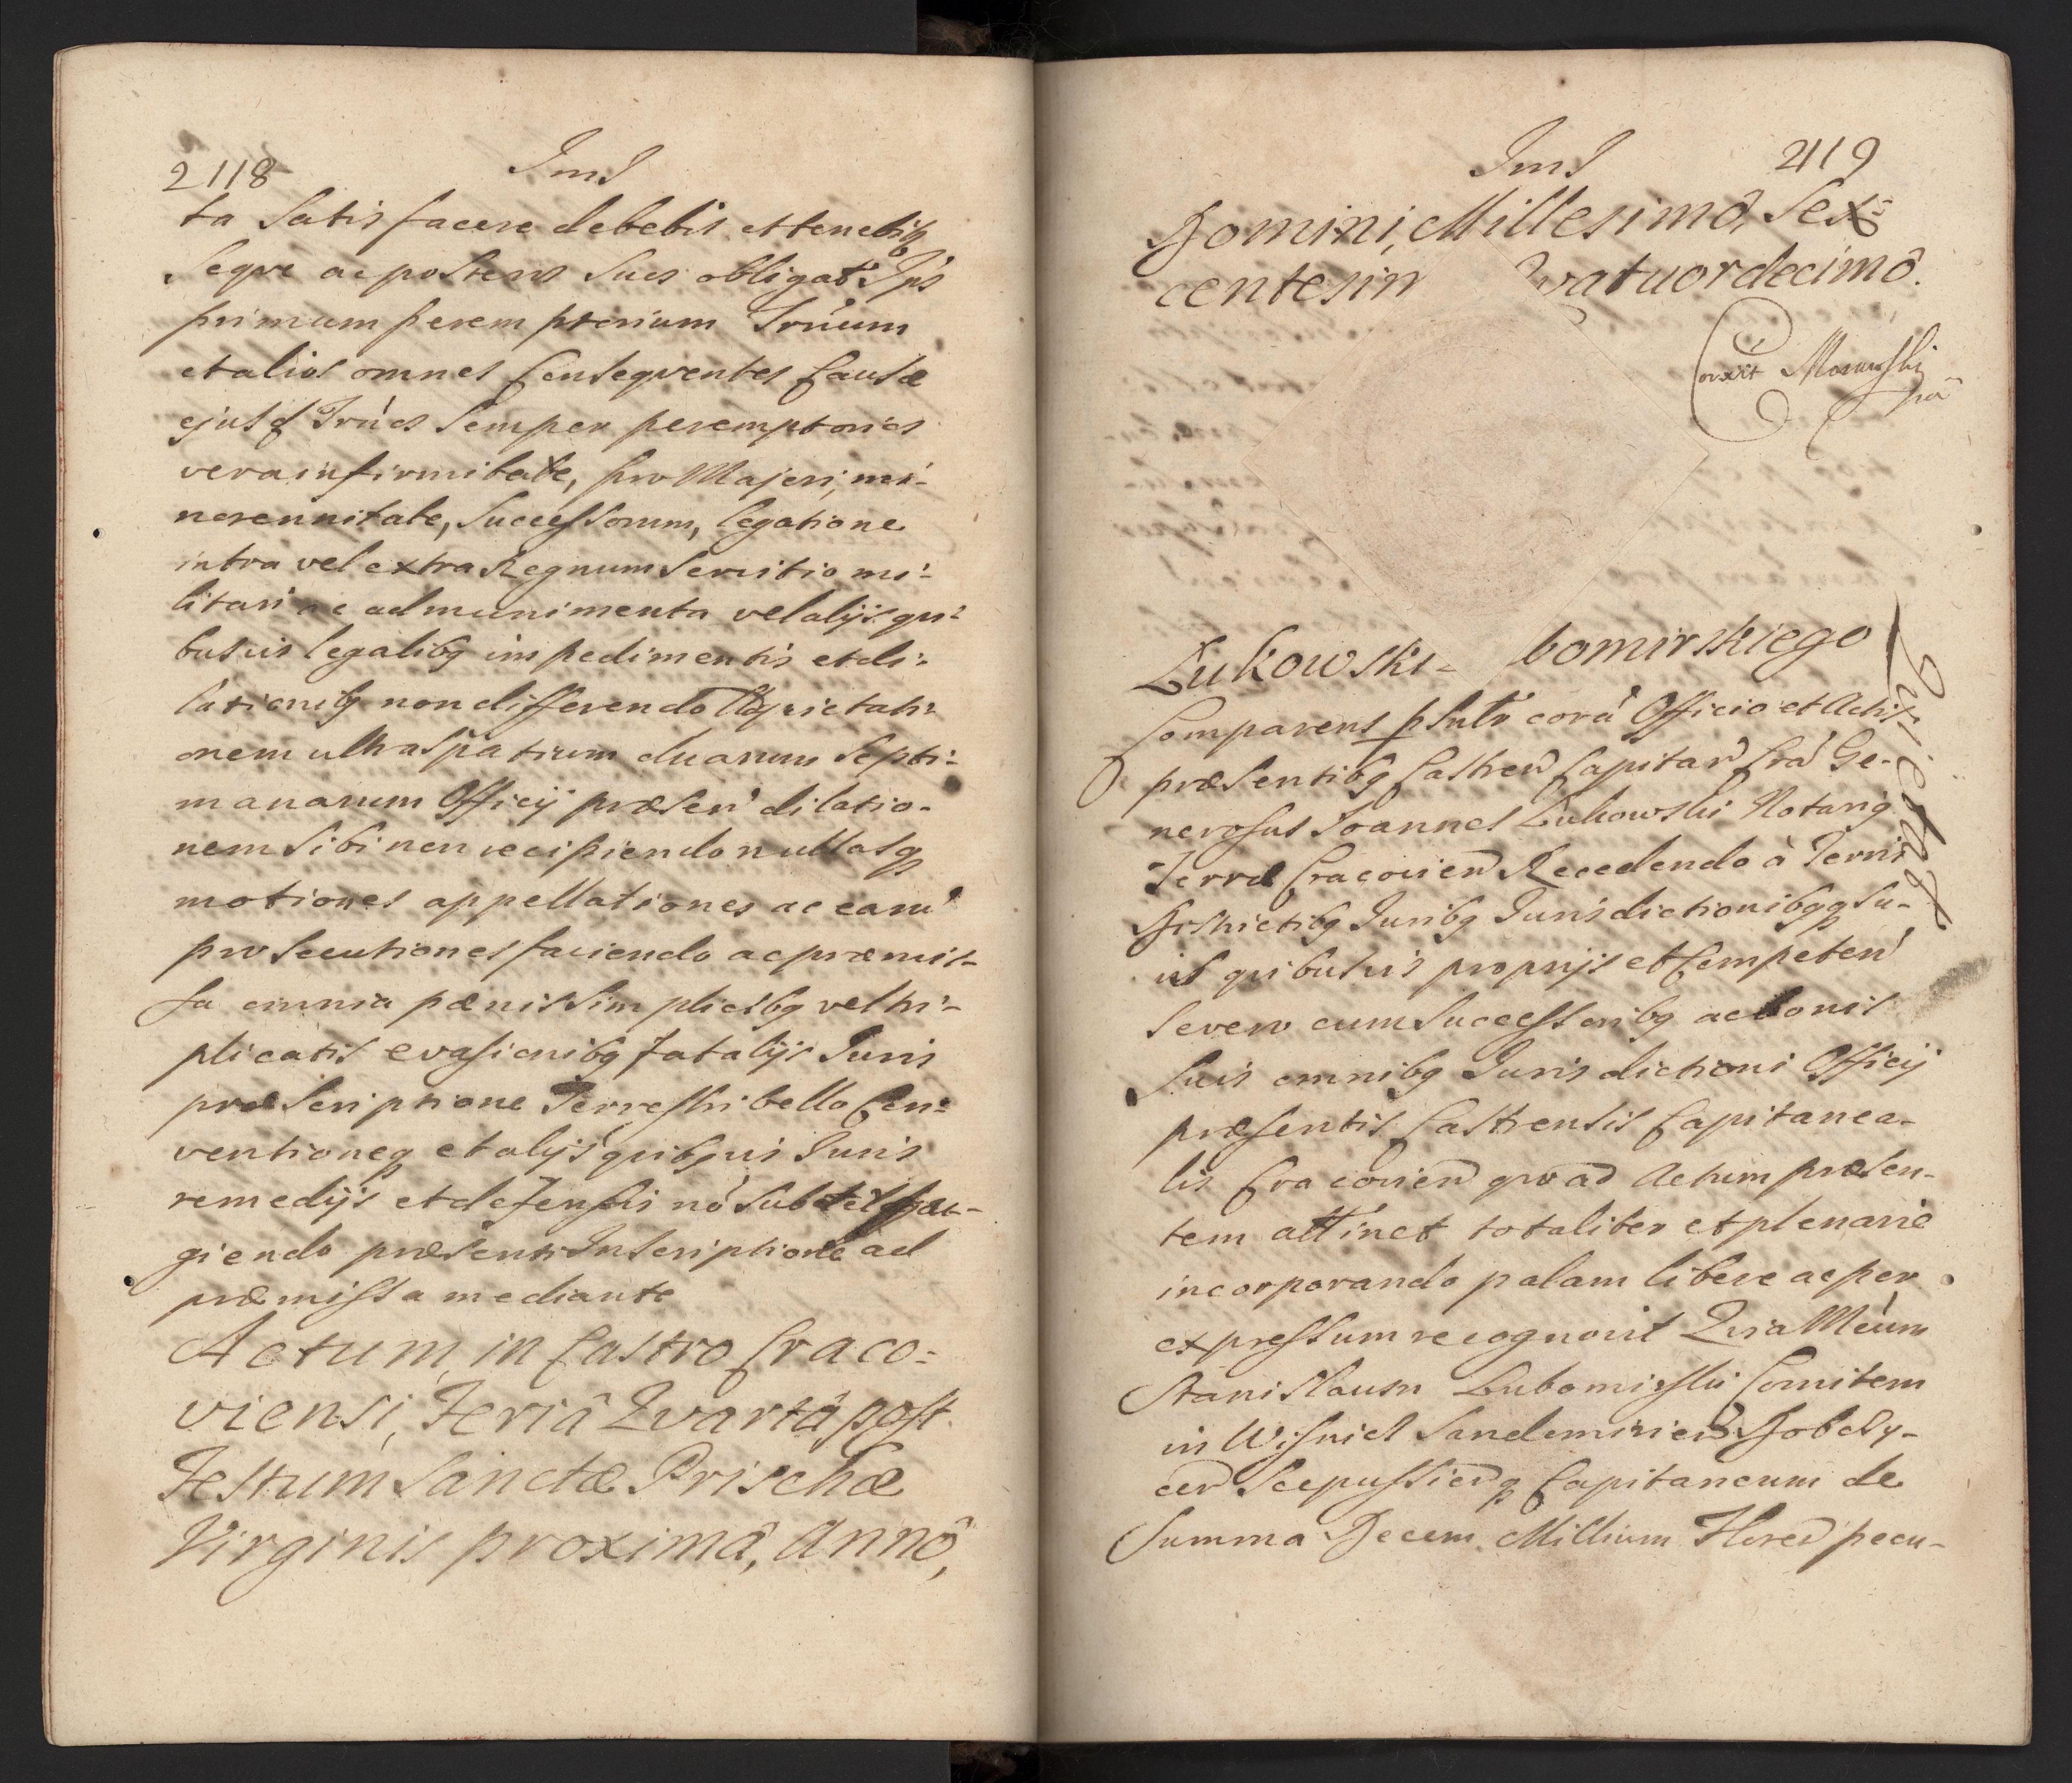 2118
ta satis facere debebit et tenebitq
seqve ac posteros suos obligat Ips
primum peremptorium Trûum
et alios omnes Consequentes Causæ
ejusd Trûos semper peremptorios
vera infirmitate, pro Majori, mi-
norennitate, Successorum, legatione
intra vel extra Regnum Servitio mi-
litari ac ad munimenta vel alijs qui-
busvis legalibq impedimentis et di-
lationibq non differendo
onem ultra spatium duarum septi-
manarum Officij præsen dilatio-
nem sibi non recipiendo nullasq
motiones appellationes ac earu
prosecutiones faciendo ac præmis-
sa omnia pænis simplicibq vel tri-
plicatis evasionibq fatalijs Juris
præscriptione Terrestri bello Con-
ventioneq et alijs quibqvis Juris
remedijs et defensis nô
giendo præsenti Inscriptione ad
præmissa mediante
Actum in Castro Craco-
viensi, Feriâ Qvartâ post
Festum Sanctæ Prischæ
Virginis proximâ, Annô,
2119
Domini, Millesimô, Sex-
centesim vatuordecimô.
Corâxit
Lukowski- bomirskiego
Quietat
Comparens pSntr corâ Officio et Actis
præsentibq Castren Capitan Crâ Ge-
nerosus Joannes Lukowski Notariq
Terræ Cracovien Recedendo à Terris
Districtibq Juribq Jurisdictionibqq su-
is quibusvis proprijs et Competen
severo cum Successoribq ac bonis
suis omnibq Jurisdictioni Officij
præsentis Castrensis Capitanea-
lis Cracovien qvoad Actum præsen-
tem attinet totaliter et plenarie
incorporando palam libere ac per
expressum recognovit Qvia Mcûm
Stanislaum Lubomirski Comitem
in Wisnicz Sandomirien Dobczy-
cen Scepussienq Capitaneum de
Summa Decem Millium Floren pecu-